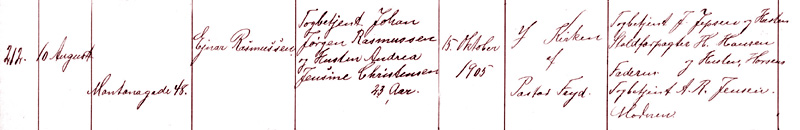 212.
10 August.
Montanagade 48.
Ejnar Rasmussen
Togbetjent Johan
Jørgen Rasmussen
og Hustru Andrea
Jensine Christensen
23 Aar.
15. Oktober
1905
I Kirken
af
Pastor Fryd.
Togbetjent J. Jepsen og Hustru
H. Hansen
og Hustru, Horsens
Faderen
Togbetjent A. R. Jensen.
Moderen.